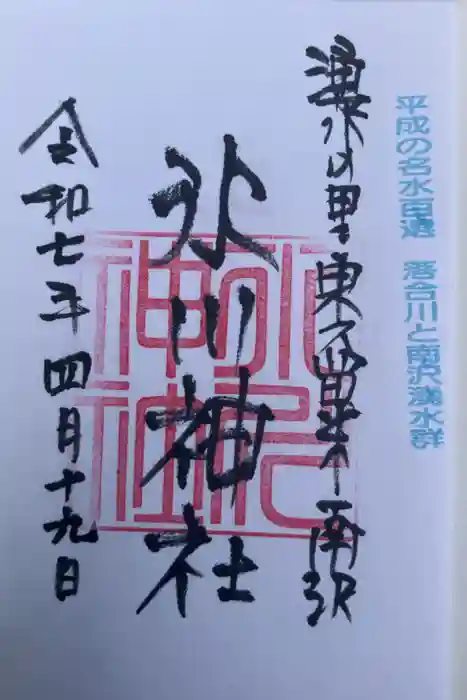 平成の名水百選 落合川と南沢湧水群
湧水の里東久留米市南沢
氷川神社
氷川神社
令和七年四月十九日